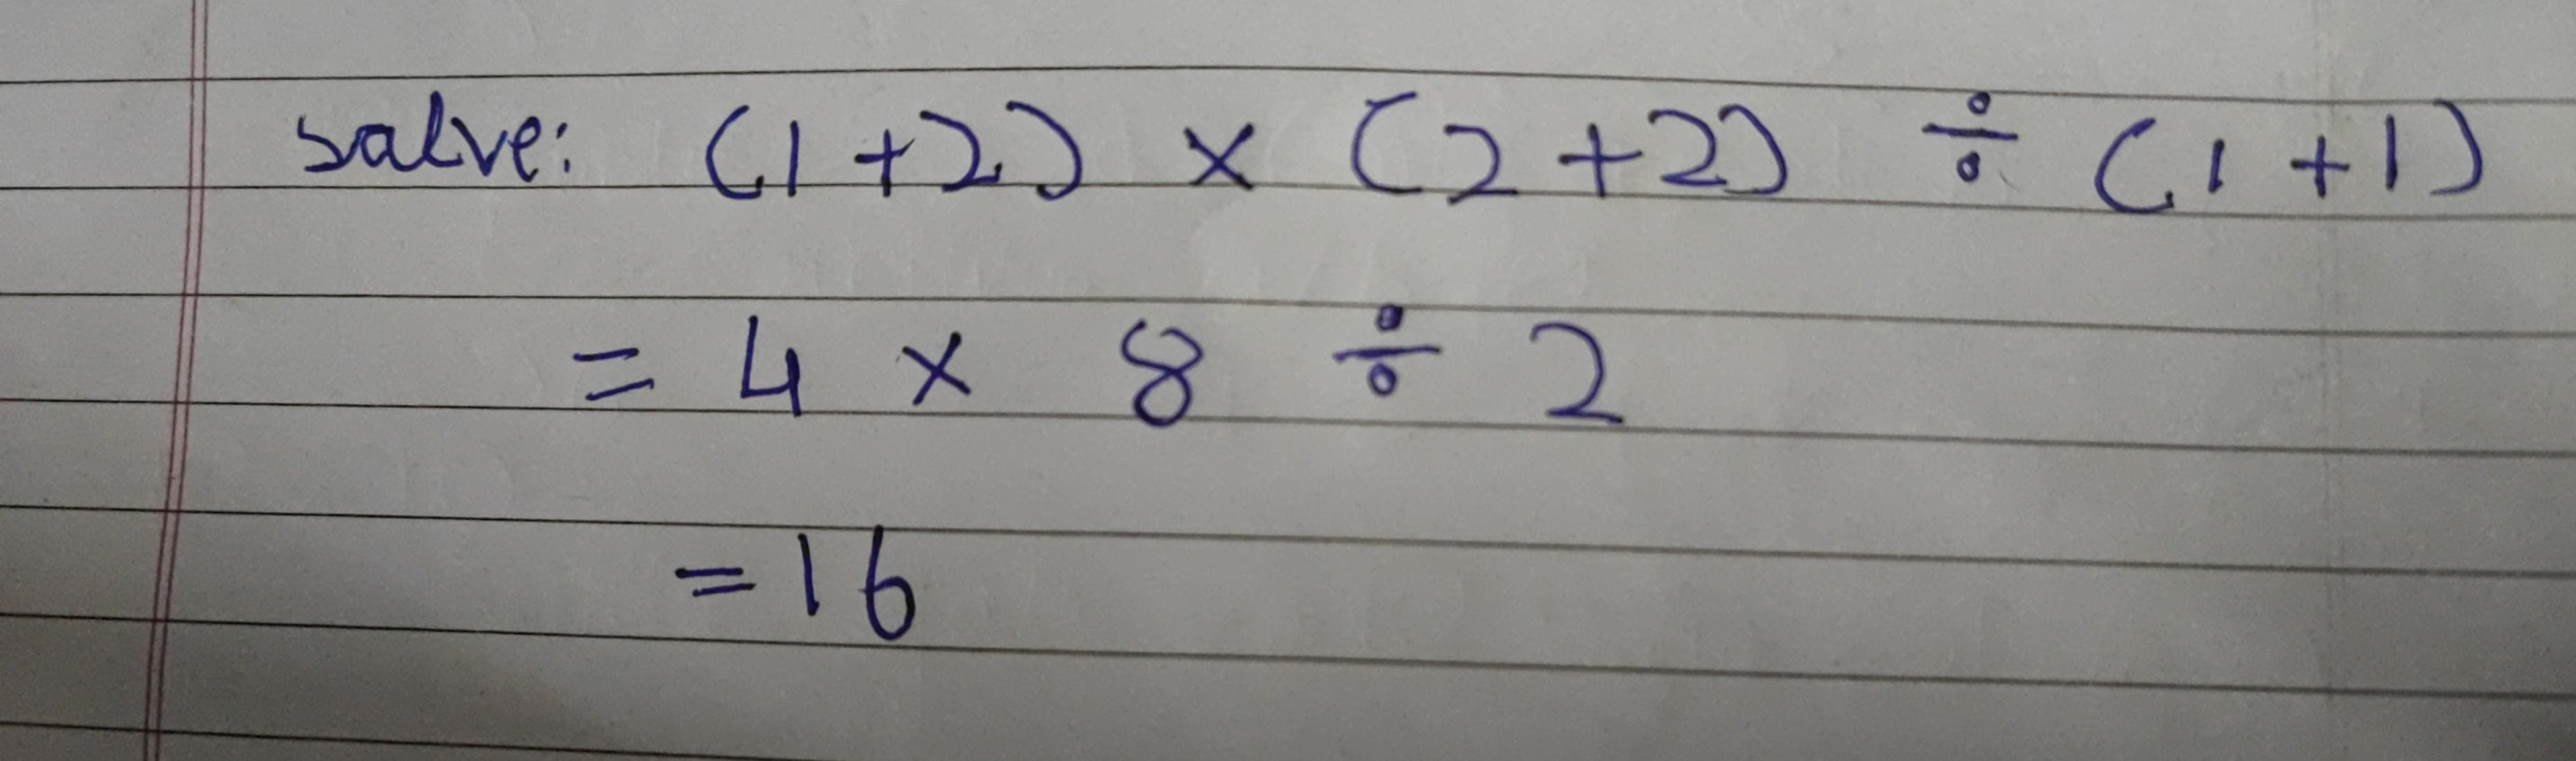 solve: (1+2) × (2+2) ÷ (1+1)
= 4 × 8 ÷ 2
= 16